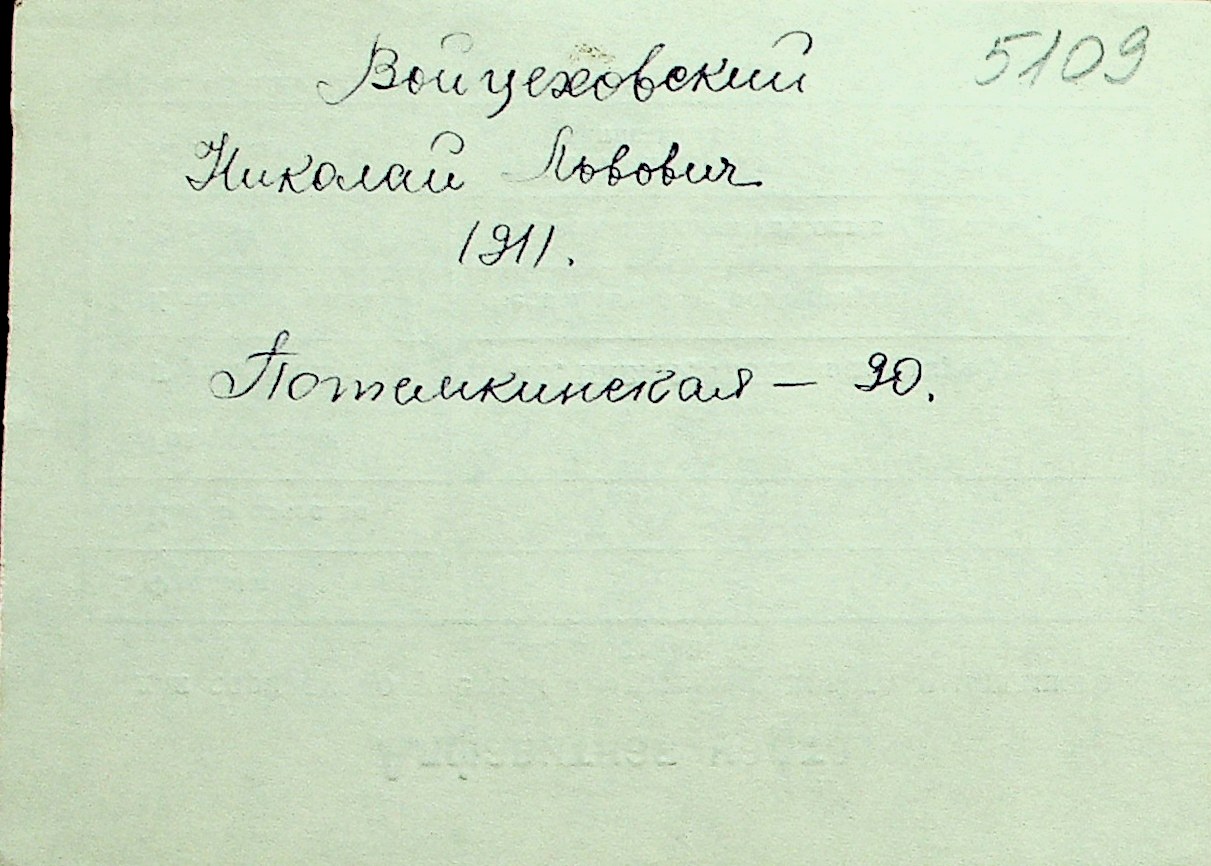 5109
Войцеховский
Николай Львович
1911.
Потемкинская – 90.